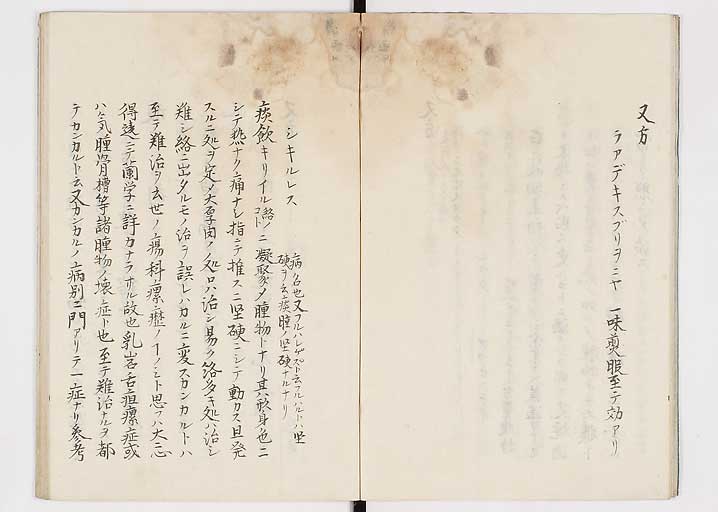 又方
ラアデキスブリヲニヤ 一味煎服至テ効アリ
シキルレス
病名也又フルハレゲストモ云フルハルトハ坚
硬ヲ云痰腫ノ坚硬ナルナリ
痰飲キリイル絡ノコトニ凝聚〆腫物トナリ其形身色ニ
シテ熱ナク痛ナシ指ニテ推スニ坚硬ニシテ動カス且発
スルニ処ヲ定メス厚肉ノ処ハ治シ易ク絡多キ処ハ治シ
難シ絡ニ出タルモノ治ヲ誤レハカルニ変スカンカルトハ
至テ難治ヲ云世ノ瘍科瘰癧ノ ノミト思フハ大ニ
得違ニテ蘭学ニ詳カナラサル故也乳岩舌疽瘰症或
ハ気腫骨槽等諸腫物ノ壊症ト也至テ難治ナルヲ都
テカンカルト云又カンカルノ病別ニ門アリテ一症ナリ参考